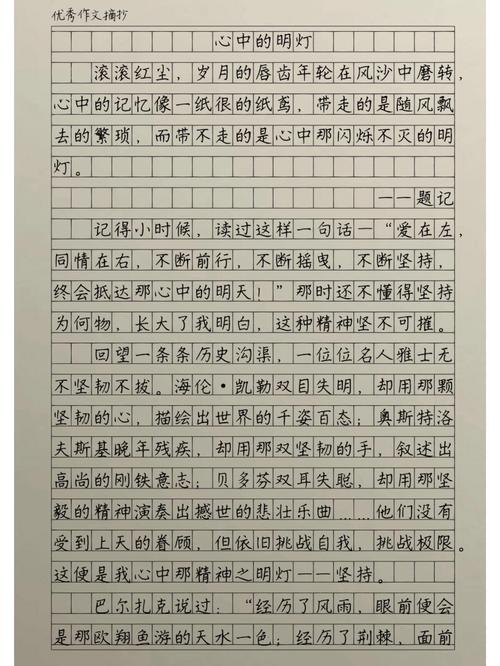 优秀作文摘抄
心中的明灯
滚滚红尘，岁月的唇齿年轮在风沙中磨转，
心中的记忆像一纸很的纸鸢，带走的是随风飘
去的繁琐，而带不走的是心中那闪烁不灭的明
灯。
——题记
记得小时候，读过这样一句话—“爱在左，
同情在右，不断前行，不断摇曳，不断坚持，
终会抵达那心中的明天！”那时还不懂得坚持
为何物，长大了我明白，这种精神坚不可摧。
回望一条条历史沟渠，一位位名人雅士无
不坚韧不拔。海伦·凯勒双目失明，却用那颗
坚韧的心，描绘出世界的千姿百态；奥斯特洛
夫斯基晚年残疾，却用那双坚韧的手，叙述出
高尚的刚铁意志；贝多芬双耳失聪，却用那坚
毅的精神演奏出撼世的悲壮乐曲……他们没有
受到上天的眷顾，但依旧挑战自我，挑战极限。
这便是我心中那精神之明灯——坚持。
巴尔扎克说过：“经历了风雨，眼前便会
是那欧翔鱼游的天水一色；经历了荆棘，面前